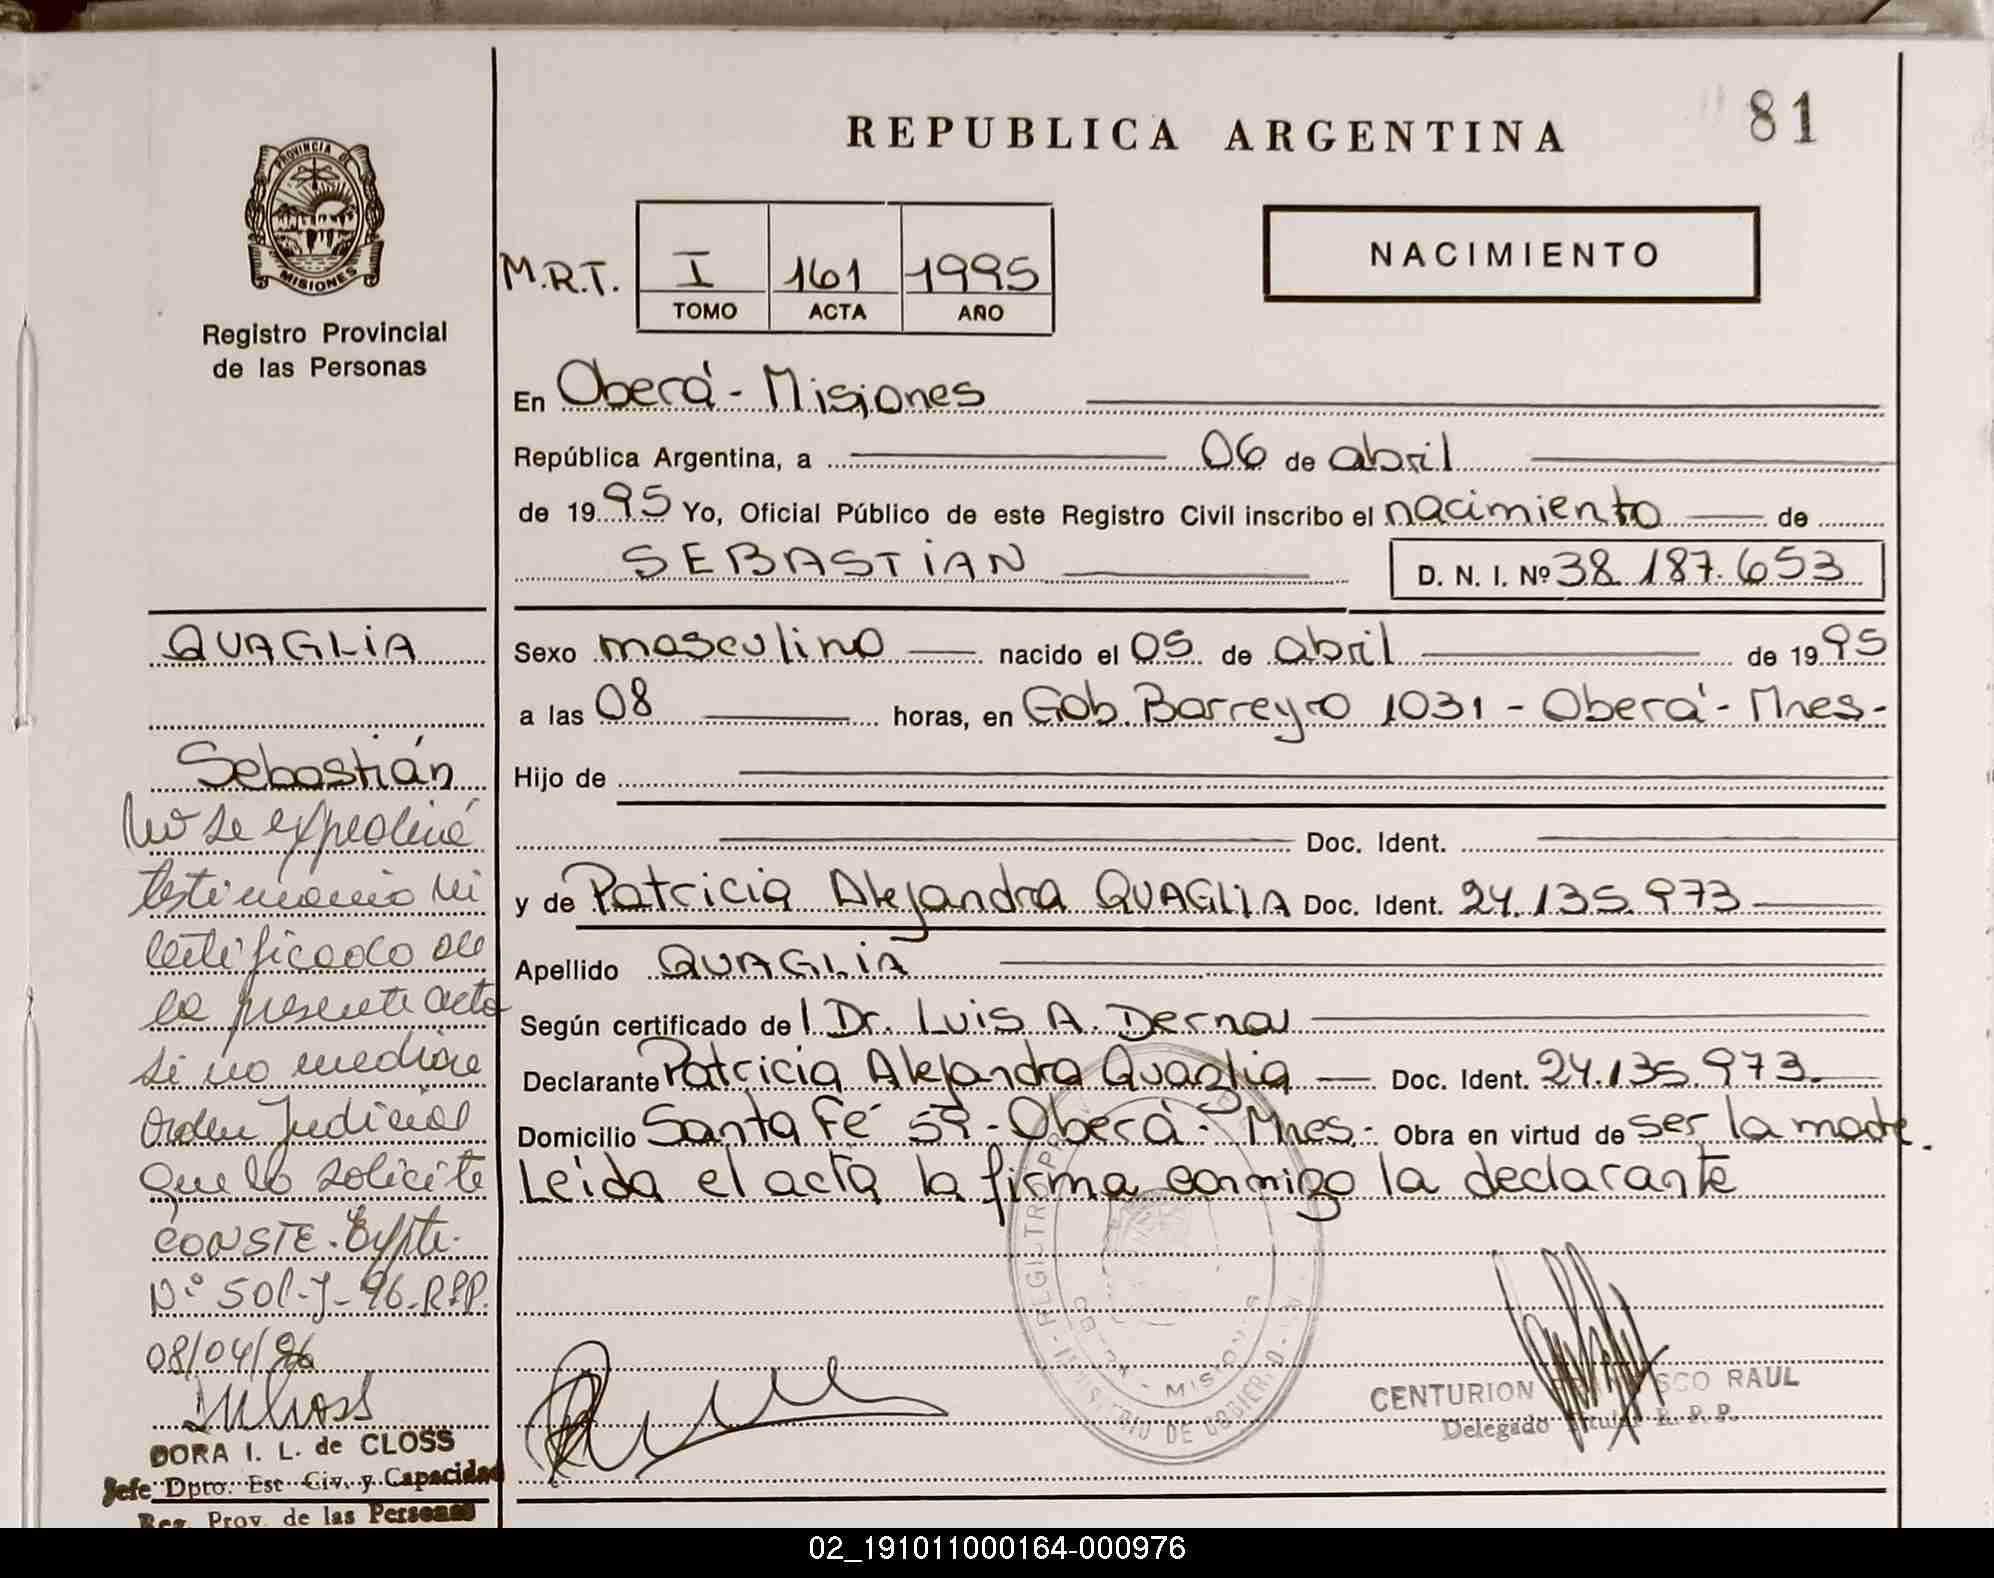 81
REPUBLICA ARGENTINA
PROVINCIA DE
MISIONES
Registro Provincial
de las Personas
NACIMIENTO
M.R.T. I 161 1995
TOMO ACTA AÑO
En Oberá - Misiones
República Argentina, a 06 de abril
de 1995 Yo, Oficial Público de este Registro Civil inscribo el nacimiento de
SEBASTIAN D. N. I. Nº 38.187.653
Sexo masculino nacido el 05 de abril de 1995
a las 08 horas, en Gob. Barreyro 1031 - Oberá - Mnes-
Hijo de
Doc. Ident.
y de Patricia Alejandra QUAGLIA Doc. Ident. 24.135.973
Apellido QUAGLIA
Según certificado de l Dr. Luis A. Derna
Declarante Patricia Alejandra Quaglia Doc. Ident. 24.135.973.
Domicilio Santa Fé 59 - Oberá - Mnes.- Obra en virtud de ser la madre.
Leida el acta la firma conmigo la declarante
CENTURION FRANCISCO RAUL
Delegado Titular R. P. P.
QUAGLIA
Sebastián
No se expedirá
testimonio ni
certificado de
la presente acta
si no mediare
Orden Judicial
que lo solicite
CONSTE. Expte.
Nº 501-J-96-RPP.
08/04/96
DORA I. L. de CLOSS
Jefe Dpto. Est Civ. y Capacidad
Reg. Prov. de las Personas
02_191011000164-000976